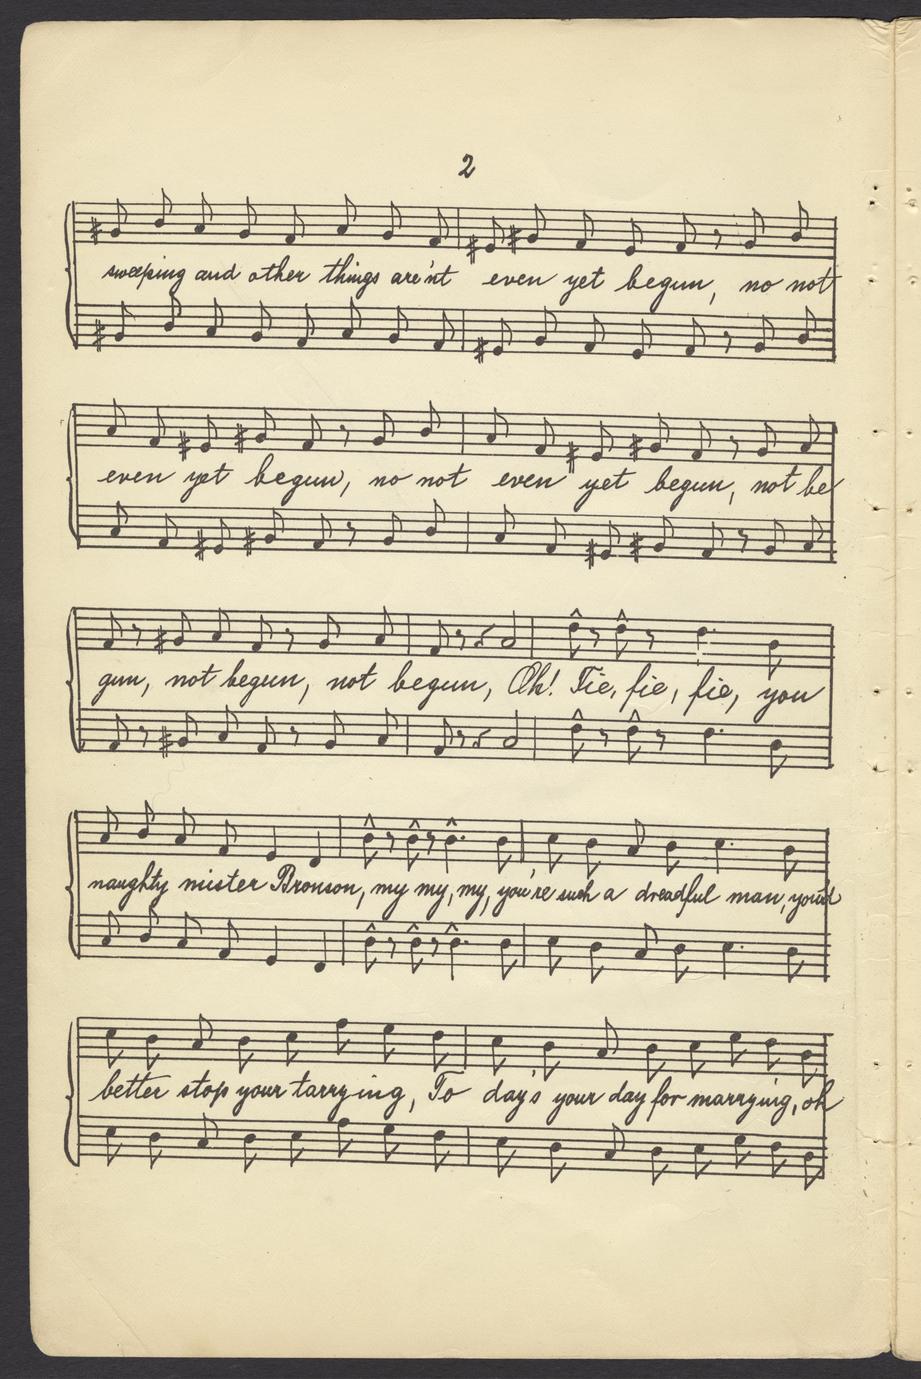 2
sweeping and other things are'nt even yet begun, no not
even yet begun, no not even yet begun, not be
gun, not begun, not begun, Oh! Fie, fie, fie, you
naughty mister Bronson, my my, my, you're such a dreadful man, you'd
better stop your tarrying, To day's your day for marrying, oh